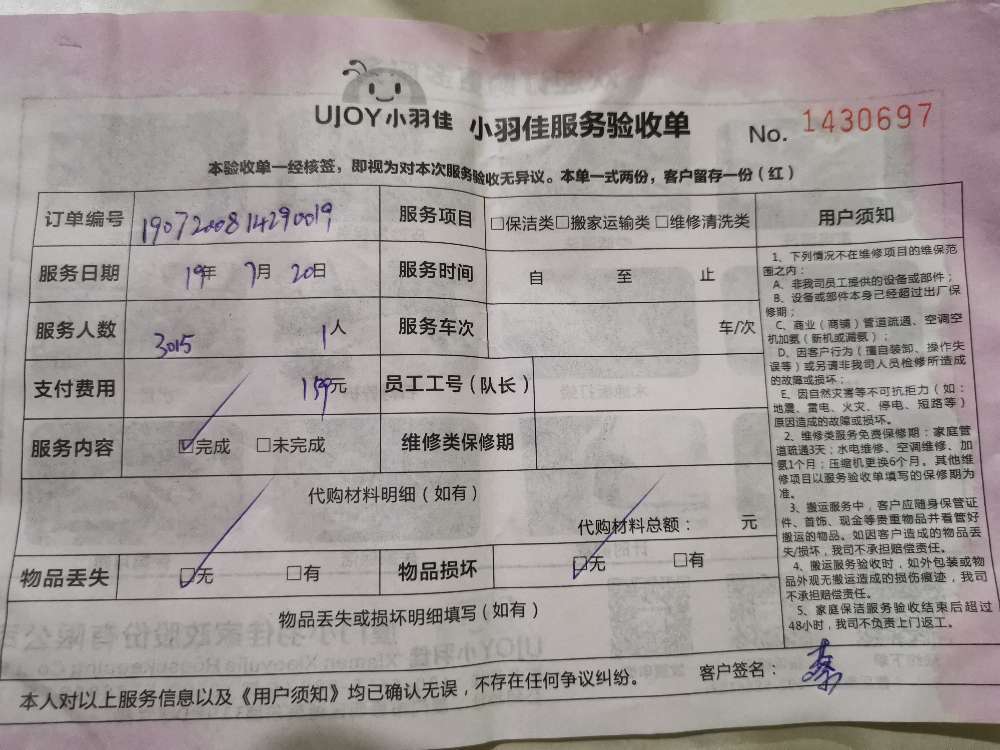 UJOY小羽佳 小羽佳服务验收单 No. 1430697
本验收单一经核签，即视为对本次服务验收无异议。本单一式两份，客户留存一份（红）
订单编号 1907200814290019 服务项目 □保洁类□搬家运输类 □维修清洗类 用户须知
服务日期 19年 7月 20日 服务时间 自 至 止
服务人数 3015 1人 服务车次 车/次
支付费用 159元 员工工号（队长）
服务内容 ☑完成 □未完成 维修类保修期
代购材料明细（如有）
代购材料总额： 元
物品丢失 ☑无 □有 物品损坏 ☑无 □有
物品丢失或损坏明细填写（如有）
1、下列情况不在维修项目的维保范
围之内：
A、非我司员工提供的设备或部件；
B、设备或部件本身已经超过出厂保
修期；
C、商业（商铺）管道疏通、空调空
机加氨（新机或漏氨）；
D、因客户行为（擅自装卸、操作失
误等）或另请非我司人员检修所造成
的故障或损坏；
E、因自然灾害等不可抗拒力（如：
地震、雷电、火灾、停电、短路等）
原因造成的故障或损坏。
2、维修类服务免费保修期：家庭管
道疏通3天；水电维修、空调维修、加
氨1个月；压缩机更换6个月。其他维
修项目以服务验收单填写的保修期为
准。
3、搬运服务中，客户应随身保管证
件、首饰、现金等贵重物品并看管好
搬运的物品。如因客户造成的物品丢
失/损坏，我司不承担赔偿责任。
4、搬运服务验收时，如外包装或物
品外观无搬运造成的损伤痕迹，我司
不承担赔偿责任。
5、家庭保洁服务验收结束后超过
48小时，我司不负责上门返工。
本人对以上服务信息以及《用户须知》均已确认无误，不存在任何争议纠纷。 客户签名： 蔡